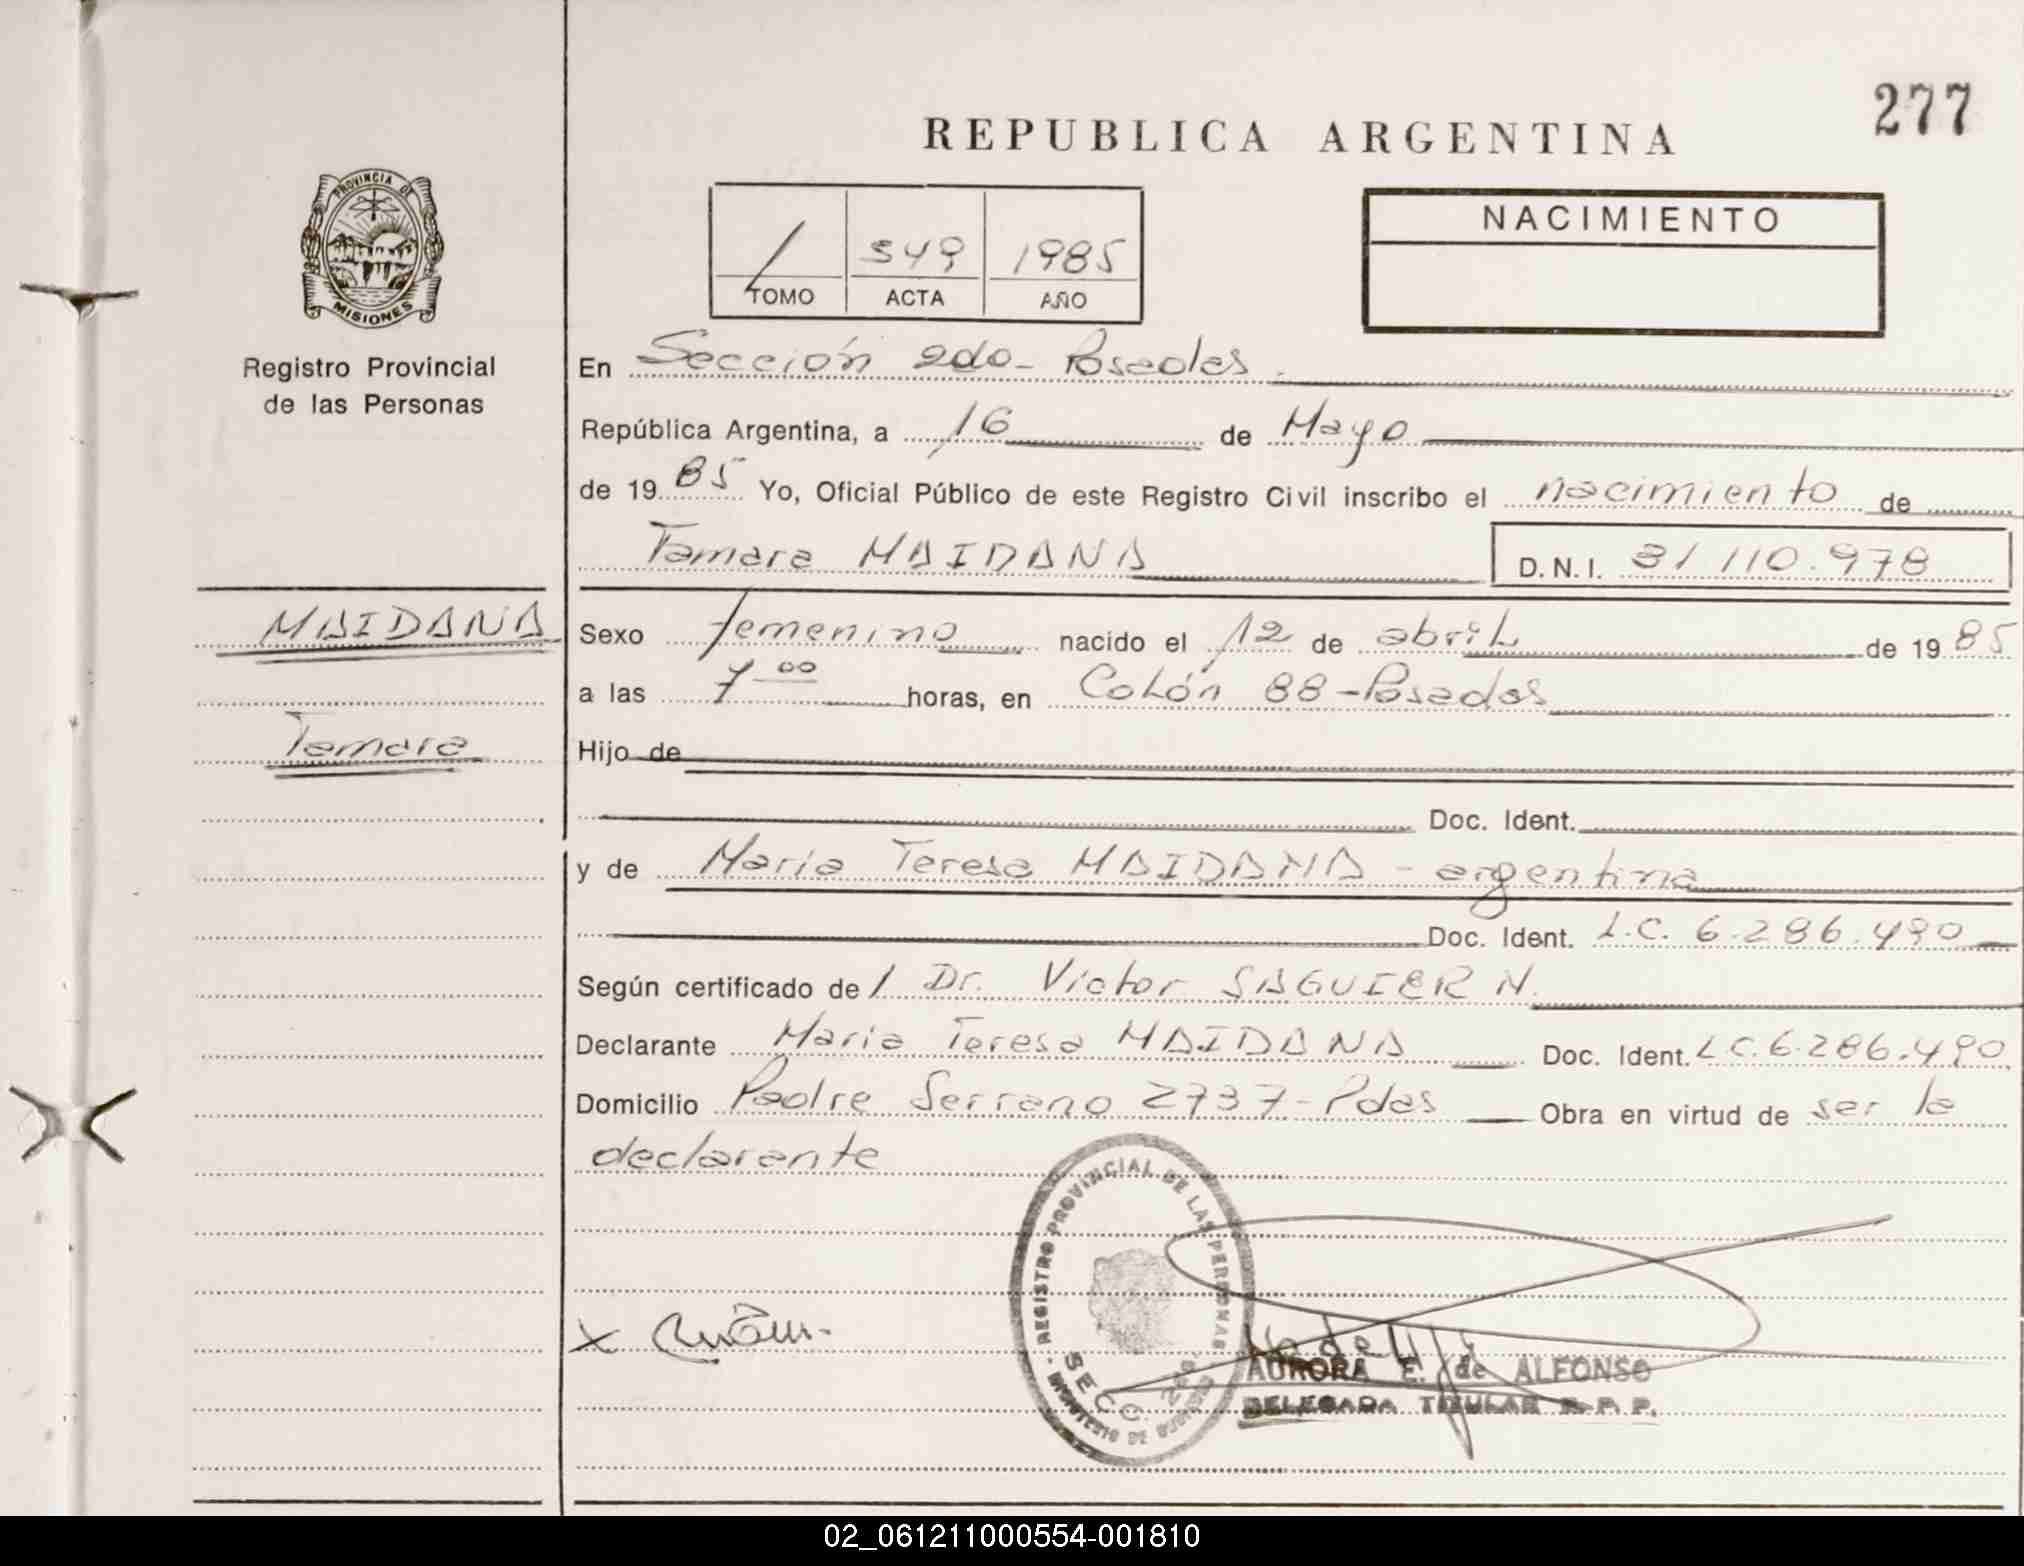 277
REPUBLICA ARGENTINA
PROVINCIA DE
MISIONES
Registro Provincial
de las Personas
NACIMIENTO
/ 549 1985
TOMO ACTA AÑO
En Sección 2do- Posadas.
República Argentina, a 16 de Mayo
de 1985 Yo, Oficial Público de este Registro Civil inscribo el nacimiento de
Tamara MAIDANA D.N.I. 31 110.978
MAIDANA
Tamara
Sexo femenino nacido el 12 de abril de 1985
a las 7 00 horas, en Colón 88-Posadas
Hijo de
Doc. Ident.
y de María Teresa MAIDANA - argentina
Doc. Ident. L.C. 6.286.490
Según certificado de / Dr. Victor SAGUIER N.
Declarante María Teresa MAIDANA Doc. Ident. L.C. 6.286.490
Domicilio Padre Serrano 2737-Pdas Obra en virtud de ser la
declarante
REGISTRO PROVINCIAL DE LAS PERSONAS
SECC.
MINISTERIO DE
AURORA E. de ALFONSO
DELEGADA TITULAR R.P.P.
02_061211000554-001810